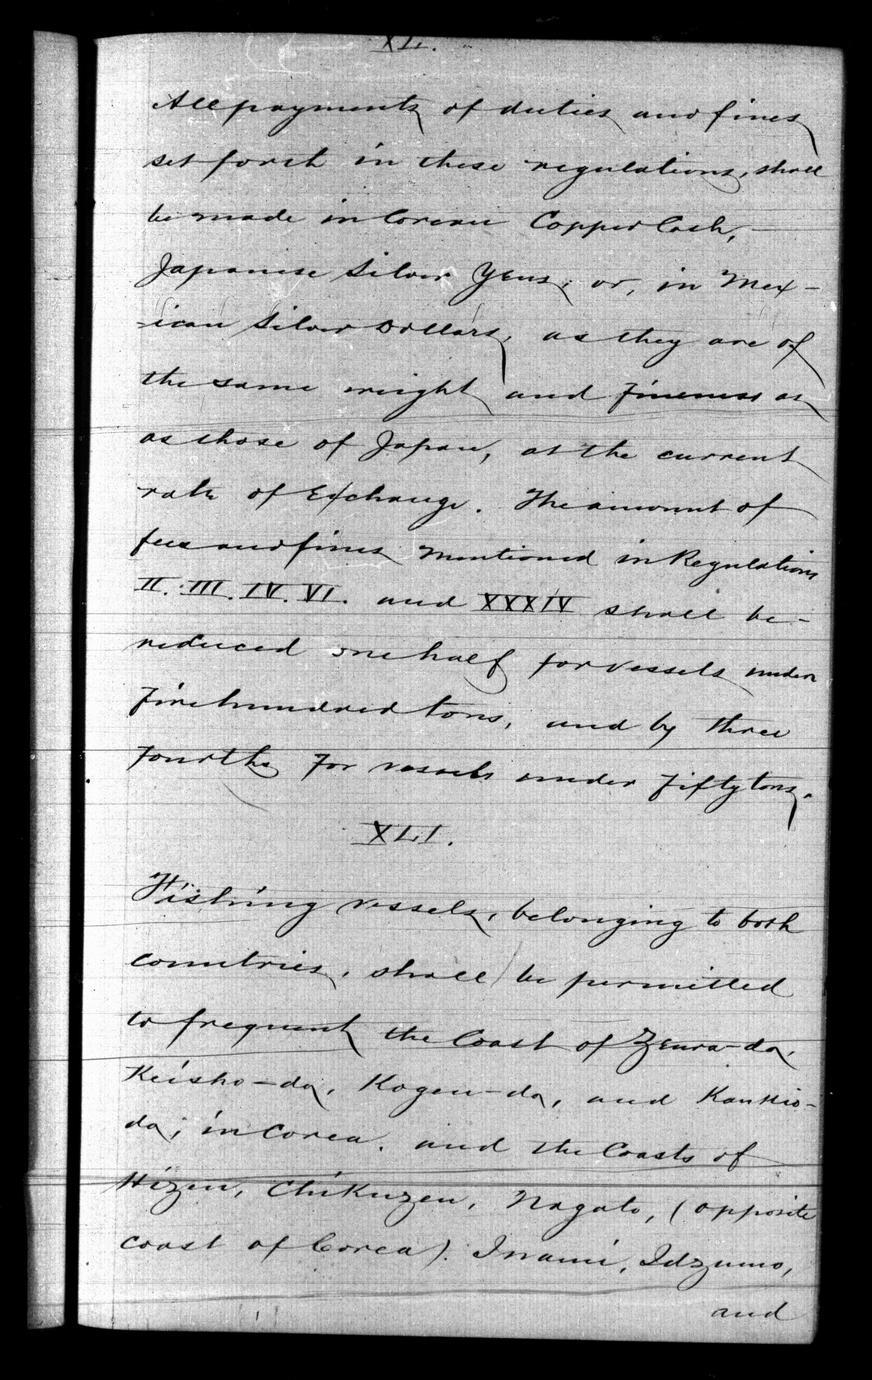 XL.
All payments of duties and fines
set forth in these regulations, shall
be made in Corean Copper Cash,
Japanese Silver Yens, or, in Mex-
ican Silver Dollars, as they are of
the same weight and Fineness as
as those of Japan, at the current
rate of Exchange. The amount of
fees and fines mentioned in Regulations
II. III. IV. VI. and XXXIV shall be-
reduced one half for vessels under
Five hundred tons, and by three
Fourths For vessels under Fifty tons.
XLI.
Fishing vessels, belonging to both
countries, shall be permitted
to frequent the Coast of Zenra-do,
Keisho-do, Kogen-do, and Kankio-
do; in Corea. and the Coasts of
Hizen, Chikuzen, Nagato, (opposite
coast of Corea). Inami, Idzumo,
and